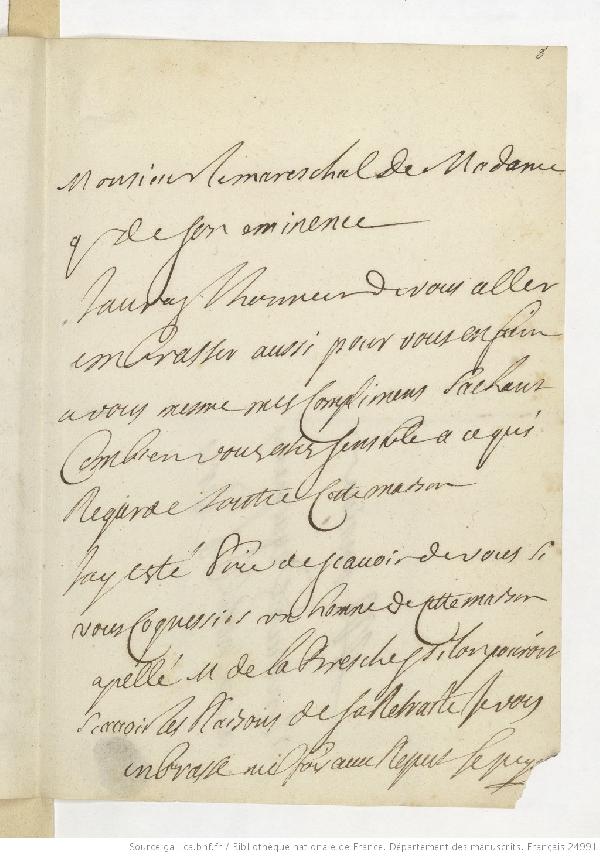 8
Monsieur le mareschal de Madame
de son eminence
Jauray lhonneur de vous aller
embrasser aussi pour vous en faire
a vous mesme mes Complimens Sachant
Combien vous estes sensible a ce qui
Regarde toutte Cette maison
Jay esté Prié de scauoir de vous si
vous un homme de Cette maison
apellé M de la Bresche Silon pouroit
Scauoir les Raisons de sa Retraitte Je vous
enbrasse mil fois
Source gallica.bnf.fr / Bibliothèque nationale de France. Département des manuscrits. Français 24991